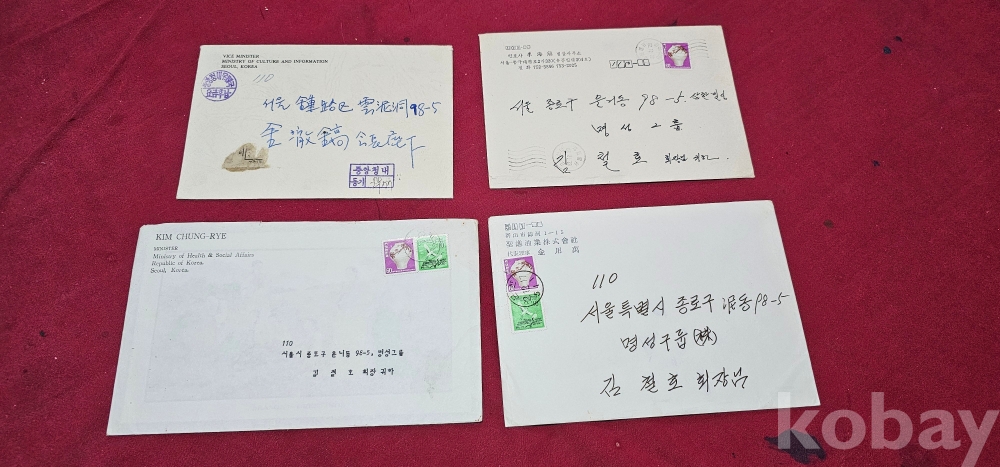 VICE MINISTER
MINISTRY OF CULTURE AND INFORMATION
SEOUL, KOREA
110
서울 鍾路區 雲泥洞 98-5
金澈鎬 会長 座下
중앙청내
등기
변호사
서울·중구
전화
서울 종로구 운니동 98-5. 삼환빌딩
명성그룹
김철호 회장님 귀하.
KIM CHUNG-RYE
MINISTER
Ministry of Health & Social Affairs
Republic of Korea.
Seoul, Korea.
60
110
서울시 종로구 운니동 98-5, 명성그룹
김철호 회장 귀하
株式會社
代表理事 金川
60
110
서울특별시 종로구 泥동 98-5
명성구룹 (株)
김철호 회장님
kobay